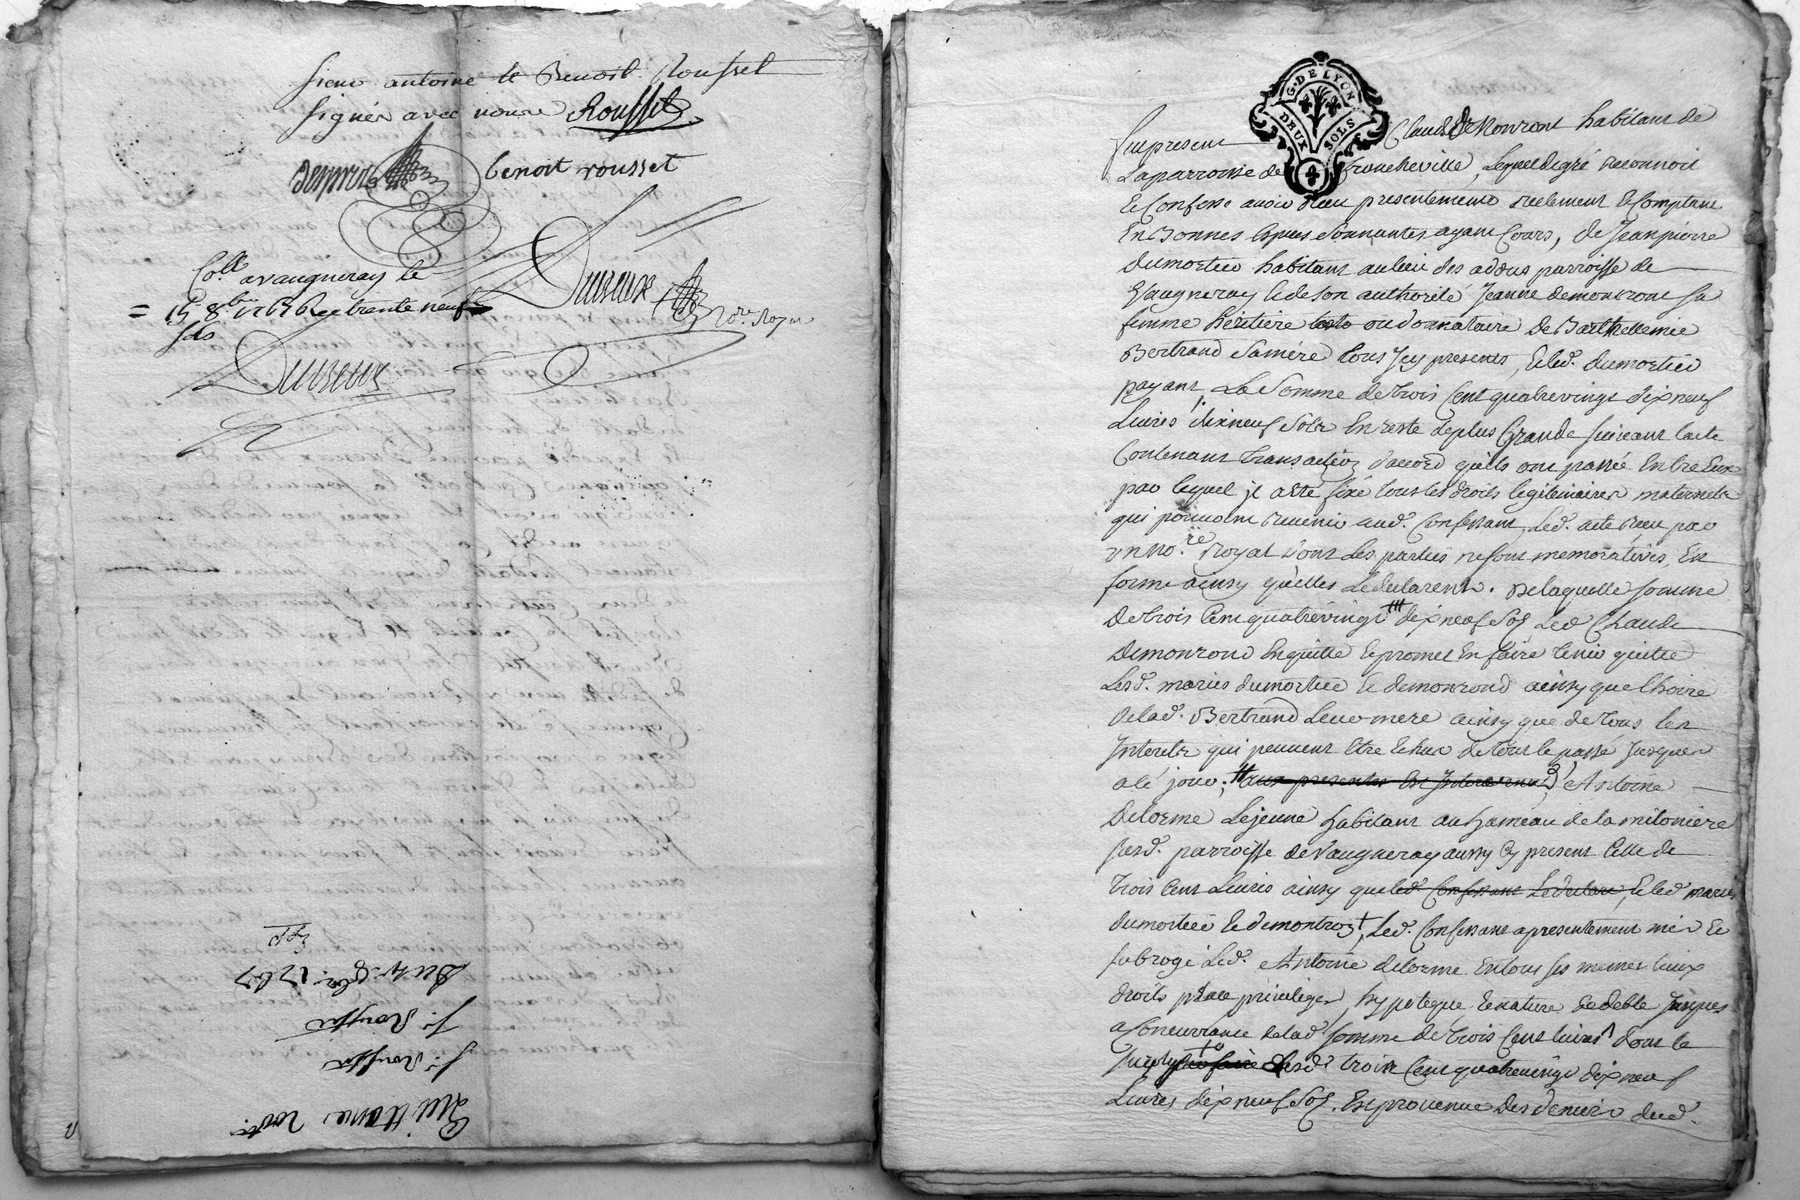 sieur antoine et Benoit Rousset
signés avec nous Rousset
benoit rousset
Coll. a vaugneray le
= 15 8bre 1767 Re trente neuf
sols
Duvieux
Duvieux
Nore Royal
Quittance
Sr. Rousset
Sr. Rousset
Du 4 8bre 1767
Expd
G. DE LYON
DEUX SOLS
4
fut present Claude Demonront habitant de
La parroisse de francheville, Lequel de gré reconnoit
et Confesse avoir reçu presentement reelement et Comptant
En Bonnes especes Sonnantes ayant Cours, de Jean pierre
dumortier habitant au lieu des adous parroisse de
Vaugneray et de son authorité Jeanne demonront sa
femme héritiere ou donnataire de Barthellemie
Bertrand Sa mére tous Jcy presents, Et led. dumortier
payant, La Somme de trois Cent quatrevingt dixneuf
Livres dixneuf Sols En reste de plus Grande suivant lacte
Contenant transaction d'accord qu'ils ont passé Entre Eux
par lequel je acte fixé tous les droits legitimaires maternels
qui pouvoint revenir aud. Confessant, Led. acte reçu par
un nore. royal dont Les parties ne sont memoratives, En
forme ainsy qu'elles Le declarent. De laquelle somme
De trois Cent quatrevingt dixneuf Sols Led Claude
Demonrond En quitte et promet En faire tenir quitte
Lesd. mariés dumortier et demonrond ainsy que l'hoirie
de lad. Bertrand Leur mere ainsy que de tous les
Interets qui peuvent être échus de tout le passé Jusques
a cé jour, Antoine
Delorme Lejeune habitant au hameau de la milonière
susd. parroisse de Vaugneray aussy Cy present Celle de
trois Cent Livres ainsy que led. Confessant Le declare, Et led mariés
dumortier et demontrond, Led. Confessant a presentement mis et
subrogé Led. Antoine delorme En tous ses memes lieux
droits place privileges, hypoteque Et nature de debte Jusques
a Concurrance de lad. somme de trois Cent livres dont le
surplus desd. trois Cent quatrevingt dixneuf
Livres dixneuf Sols. Est provenue des deniers dud.